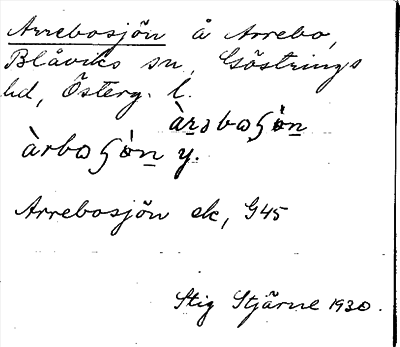 Arrebosjön å Arrebo,
Blåviks sn, Göstrings
hd, Österg. l.
àrəbɷʃön
àrbɷʃön y.
Arrebosjön ek, G45
Stig Stjärne 1930.